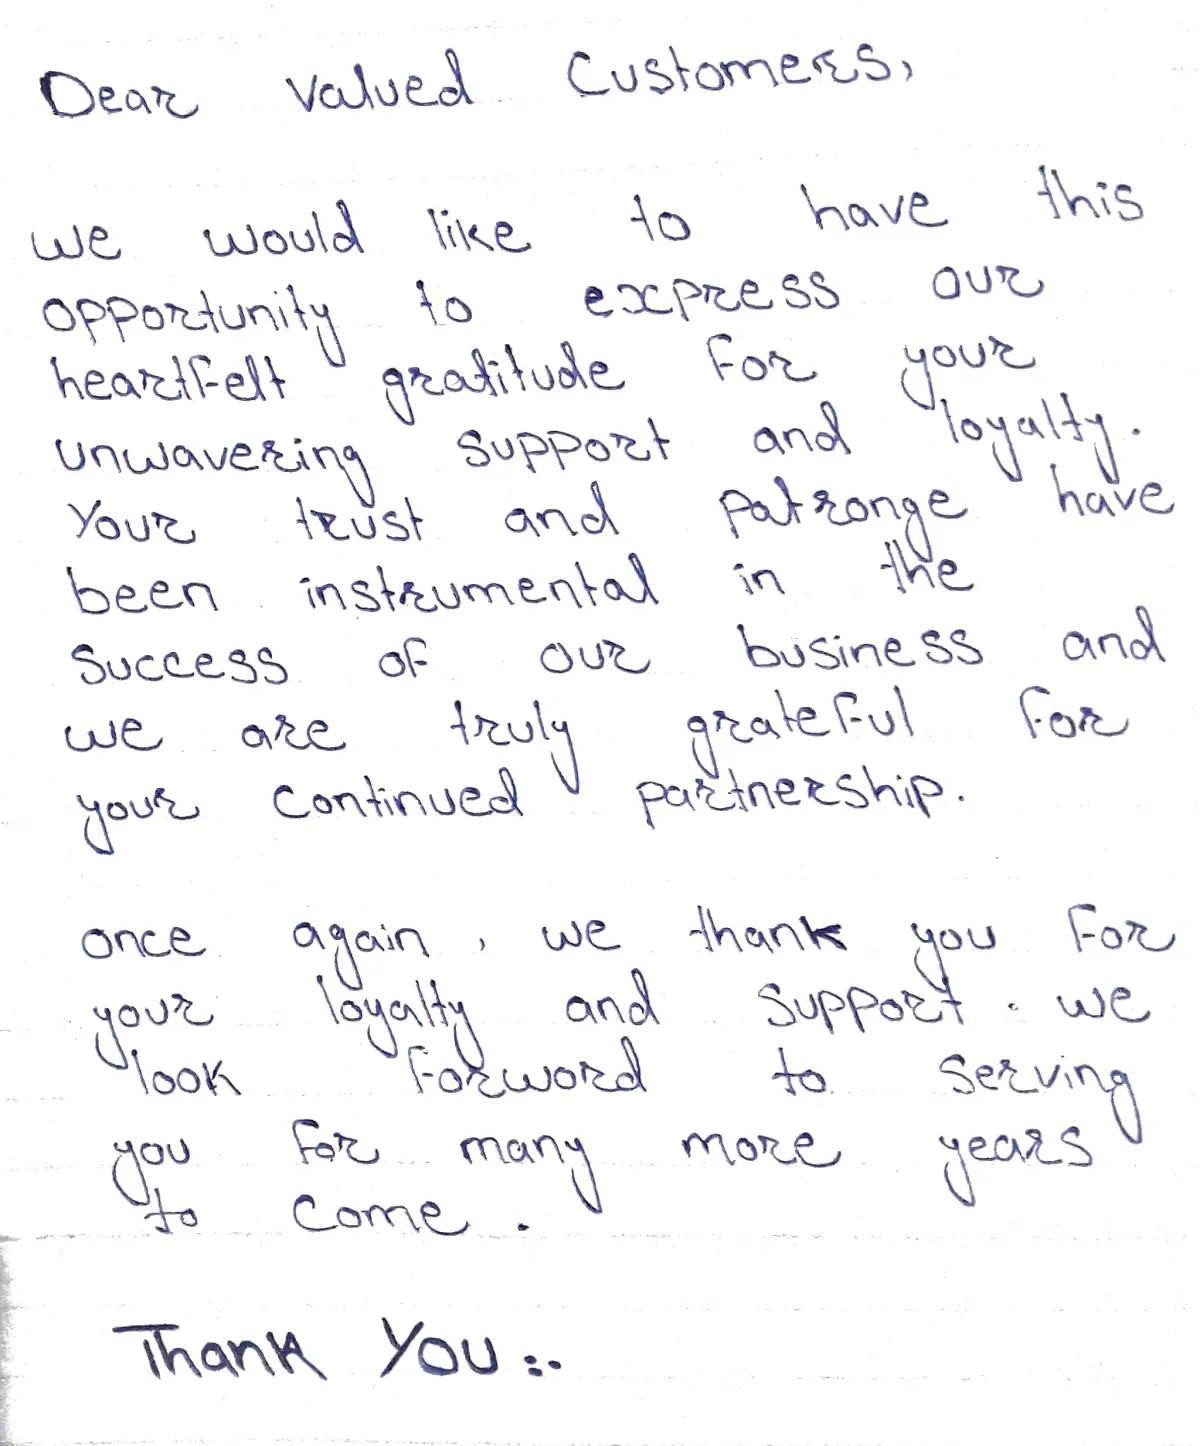 Dear Valued Customers,
we would like to have this
opportunity to express our
heartfelt gratitude for your
unwavering support and loyalty.
Your trust and patronge have
been instrumental in the
success of our business and
we are truly grateful for
your continued partnership.
once again, we thank you for
your loyalty and support. we
look forword to serving
you for many more years
to come.
Thank You :.